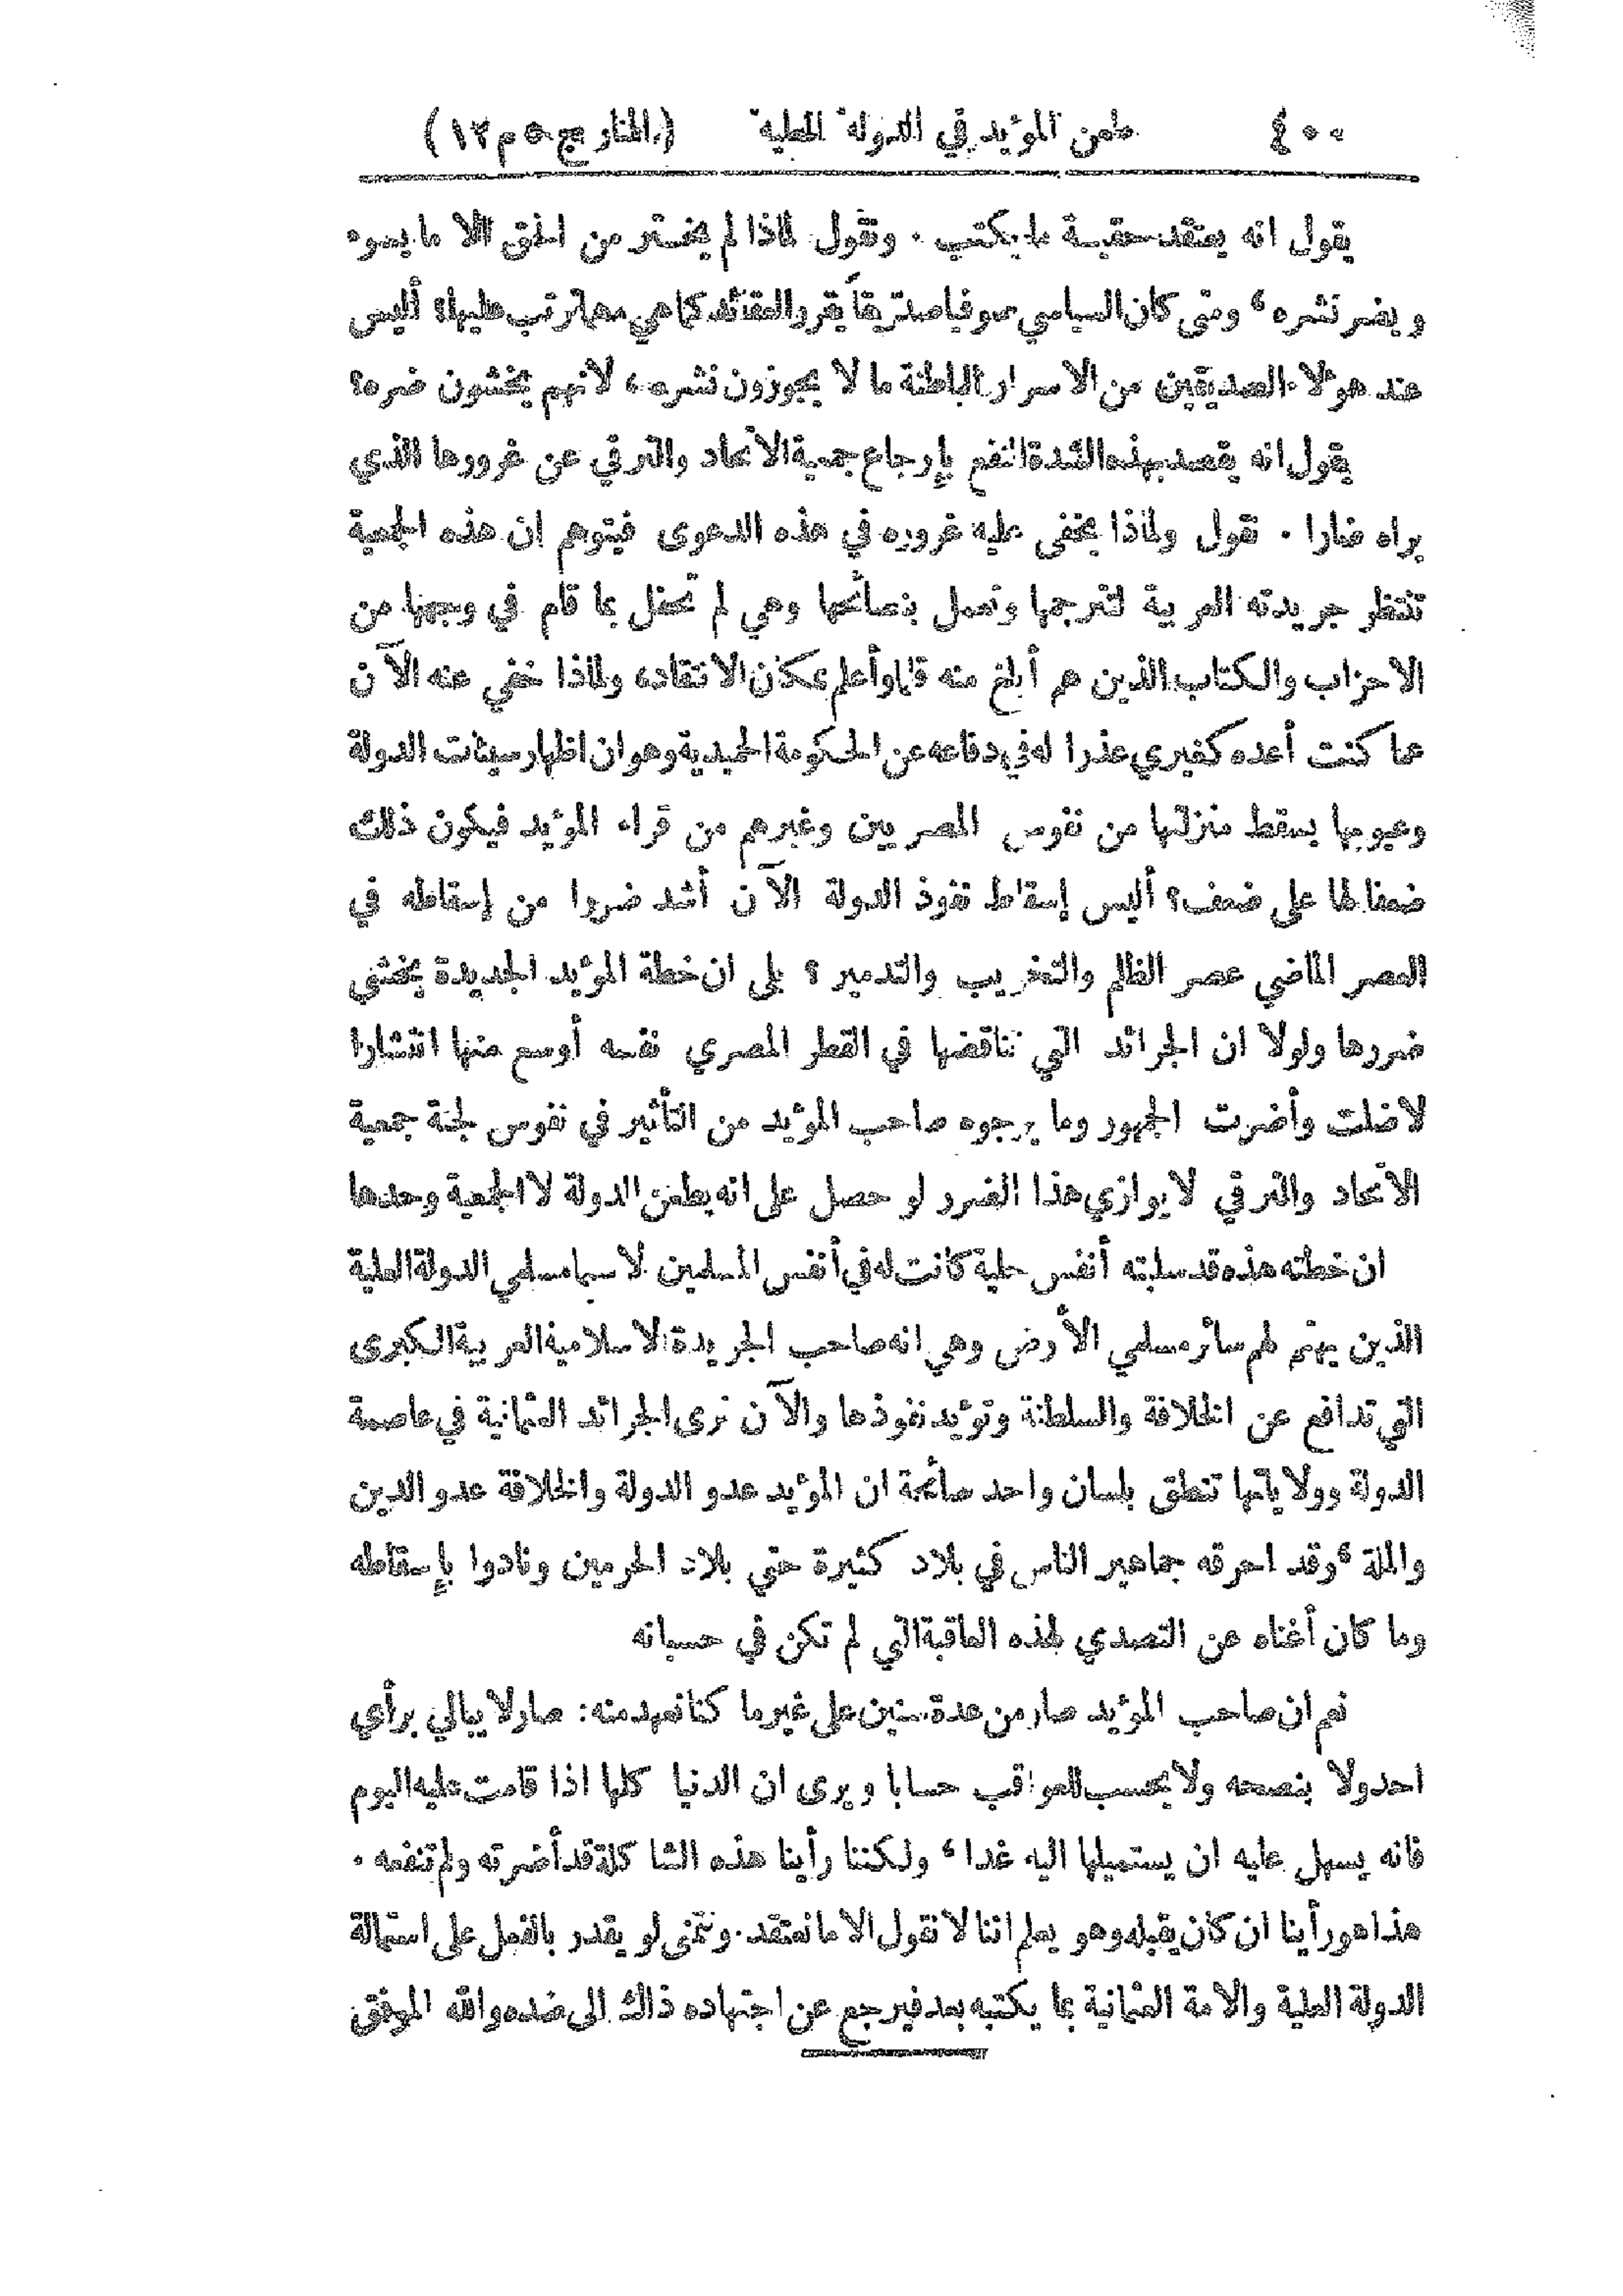 ٤٠٠ طعن المؤيد في الدولة العلية (المنار ج ٥ م ١٢)
يقول انه يعتقد حقية ما يكتب . ونقول لماذا لم يختر من الحق الا ما يسوء
ويضر نشره ، ومتى كان السياسي صوفيا صديقاً يقرر الحقائق كما هي مهما ترتب عليها؟ أليس
عند هؤلاء الصديقين من الاسرار الباطنة ما لا يجوزون نشره ، لأنهم يخشون ضره؟
يقول انه يقصد بهذه الشدة النفع بإرجاع جمعية الاتحاد والترقي عن غرورها الذي
يراه ضارا . نقول ولماذا يخفى عليه غروره في هذه الدعوى فيتوهم ان هذه الجمعية
تنتظر جريدته العربية لتترجمها وتعمل بنصائحها وهي لم تحفل بما قام في وجهها من
الاحزاب والكتاب الذين هم أبلغ منه قلما وأعلم بمكان الانتقاد ، ولماذا خفي عنه الآن
ما كنت أعده كغيري عذرا له في دفاعه عن الحكومة الحميدية وهو ان اظهار سيئات الدولة
وعيوبها يسقط منزلتها من نفوس المصريين وغيرهم من قراء المؤيد فيكون ذلك
ضعفا لها على ضعف؟ أليس إسقاط نفوذ الدولة الآن أشد ضررا من إسقاطه في
العصر الماضي عصر الظلم والتخريب والتدمير ؟ بلى ان خطة المؤيد الجديدة يخشى
ضررها ولولا ان الجرائد التي تناقضها في القطر المصري نفسه أوسع منها انتشارا
لاضلت وأضرت الجمهور وما يرجوه صاحب المؤيد من التأثير في نفوس لجنة جمعية
الاتحاد والترقي لا يوازي هذا الضرر لو حصل على انه يطعن الدولة لا الجمعية وحدها
ان خطته هذه قد سلبته أنفس حلية كانت له في أنفس المسلمين لا سيما مسلمي الدولة العلية
الذين يهتم لهم سائر مسلمي الأرض وهي انه صاحب الجريدة الاسلامية العربية الكبرى
التي تدافع عن الخلافة والسلطنة وتؤيد نفوذها والآن نرى الجرائد العثمانية في عاصمة
الدولة وولاياتها تنطق بلسان واحد صائحة ان المؤيد عدو الدولة والخلافة عدو الدين
والملة ، وقد احرقه جماهير الناس في بلاد كثيرة حتى بلاد الحرمين ونادوا بإسقاطه
وما كان أغناه عن التصدي لهذه العاقبة التي لم تكن في حسبانه
نعم ان صاحب المؤيد صار من عدة سنين على غير ما كنا نعهد منه : صار لا يبالي برأي
احد ولا بنصحه ولا يحسب للعواقب حسابا ويرى ان الدنيا كلها اذا قامت عليه اليوم
فانه يسهل عليه ان يستميلها اليه غدا ، ولكننا رأينا هذه الشاكلة قد أضرته ولم تنفعه .
هذا هو رأينا ان كان يقبله وهو يعلم اننا لا نقول الا ما نعتقد . ونتمنى لو يقدر بالفعل على استمالة
الدولة العلية والامة العثمانية بما يكتبه بعد فيرجع عن اجتهاده ذاك الى ضده والله الموفق